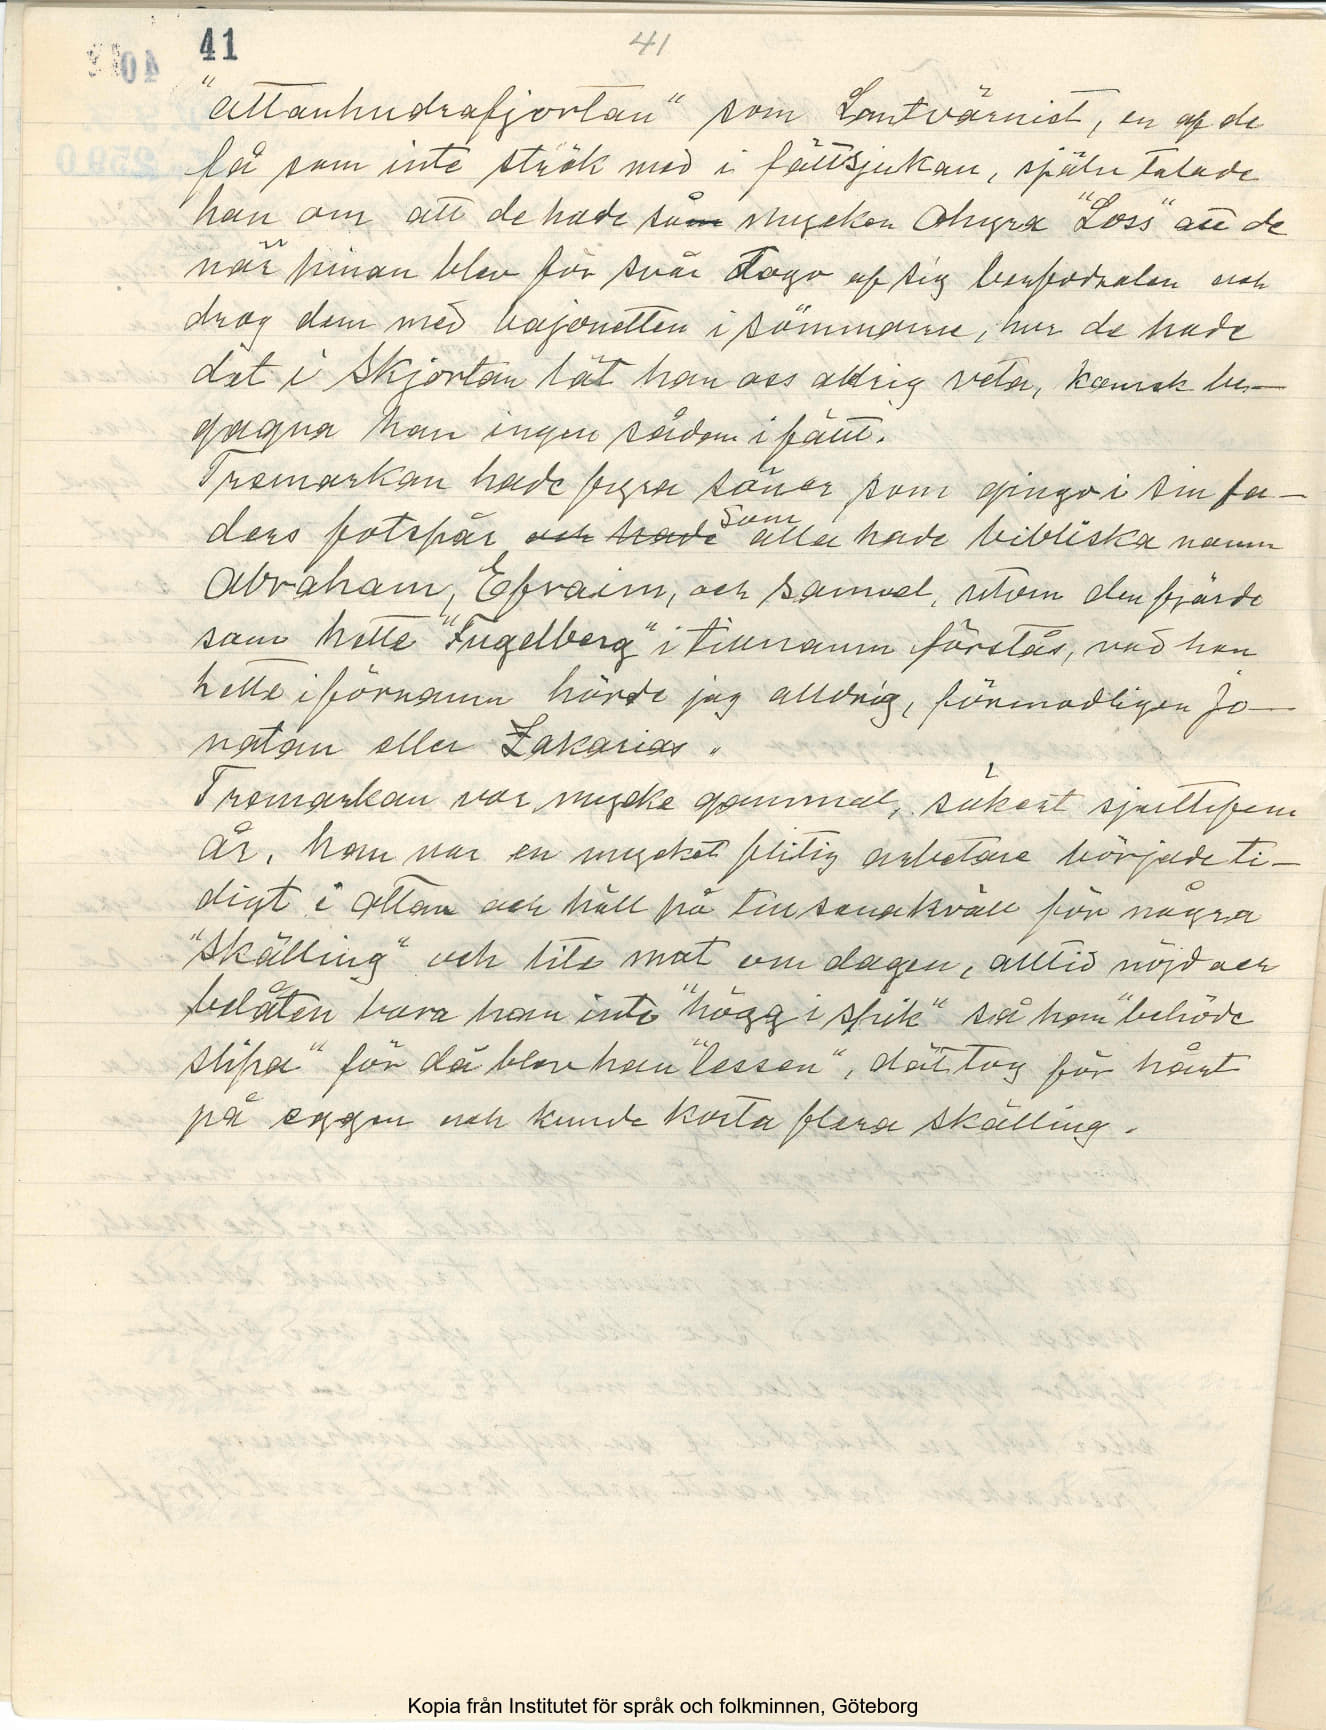 41
41
"attanhudrafjortan" som Lantvärnist, en af de
få som inte strök med i fältsjukan, själv talade
han om att de hade såm mycken Ohyra "Loss" att de
när pinan blev för svår Togo af sig benfodralen och
drog dem med bajonetten i sömmarne, hur de hade
dät i skjortan lät han oss aldrig veta, kansk be-
gagna han ingen sådan i fält.
Tremarkan hade fyra söner som gingo i sin fa-
ders fotspår och hade som alla hade bibliska namn
Abraham, Efraim, och Samuel, utom den fjärde
som hette "Fugelberg" i tillnamn förstås, vad han
hette i förnamn hörde jag alldrig, förmodligen Jo-
natan eller Zakarias.
Tremarkan var mycke gammal, säkert sjuttifem
år, han var en mycket flitig arbetare började ti-
digt i ottan och höll på till senakväll för några
"Skälling" och lite mat om dagen, alltid nöjd och
belåten bara han inte "högg i spik" så han "behöde
slipa" för då blev han "lessen", dät tog för hårt
på eggen och kunde kosta flera skälling.
Kopia från Institutet för språk och folkminnen, Göteborg